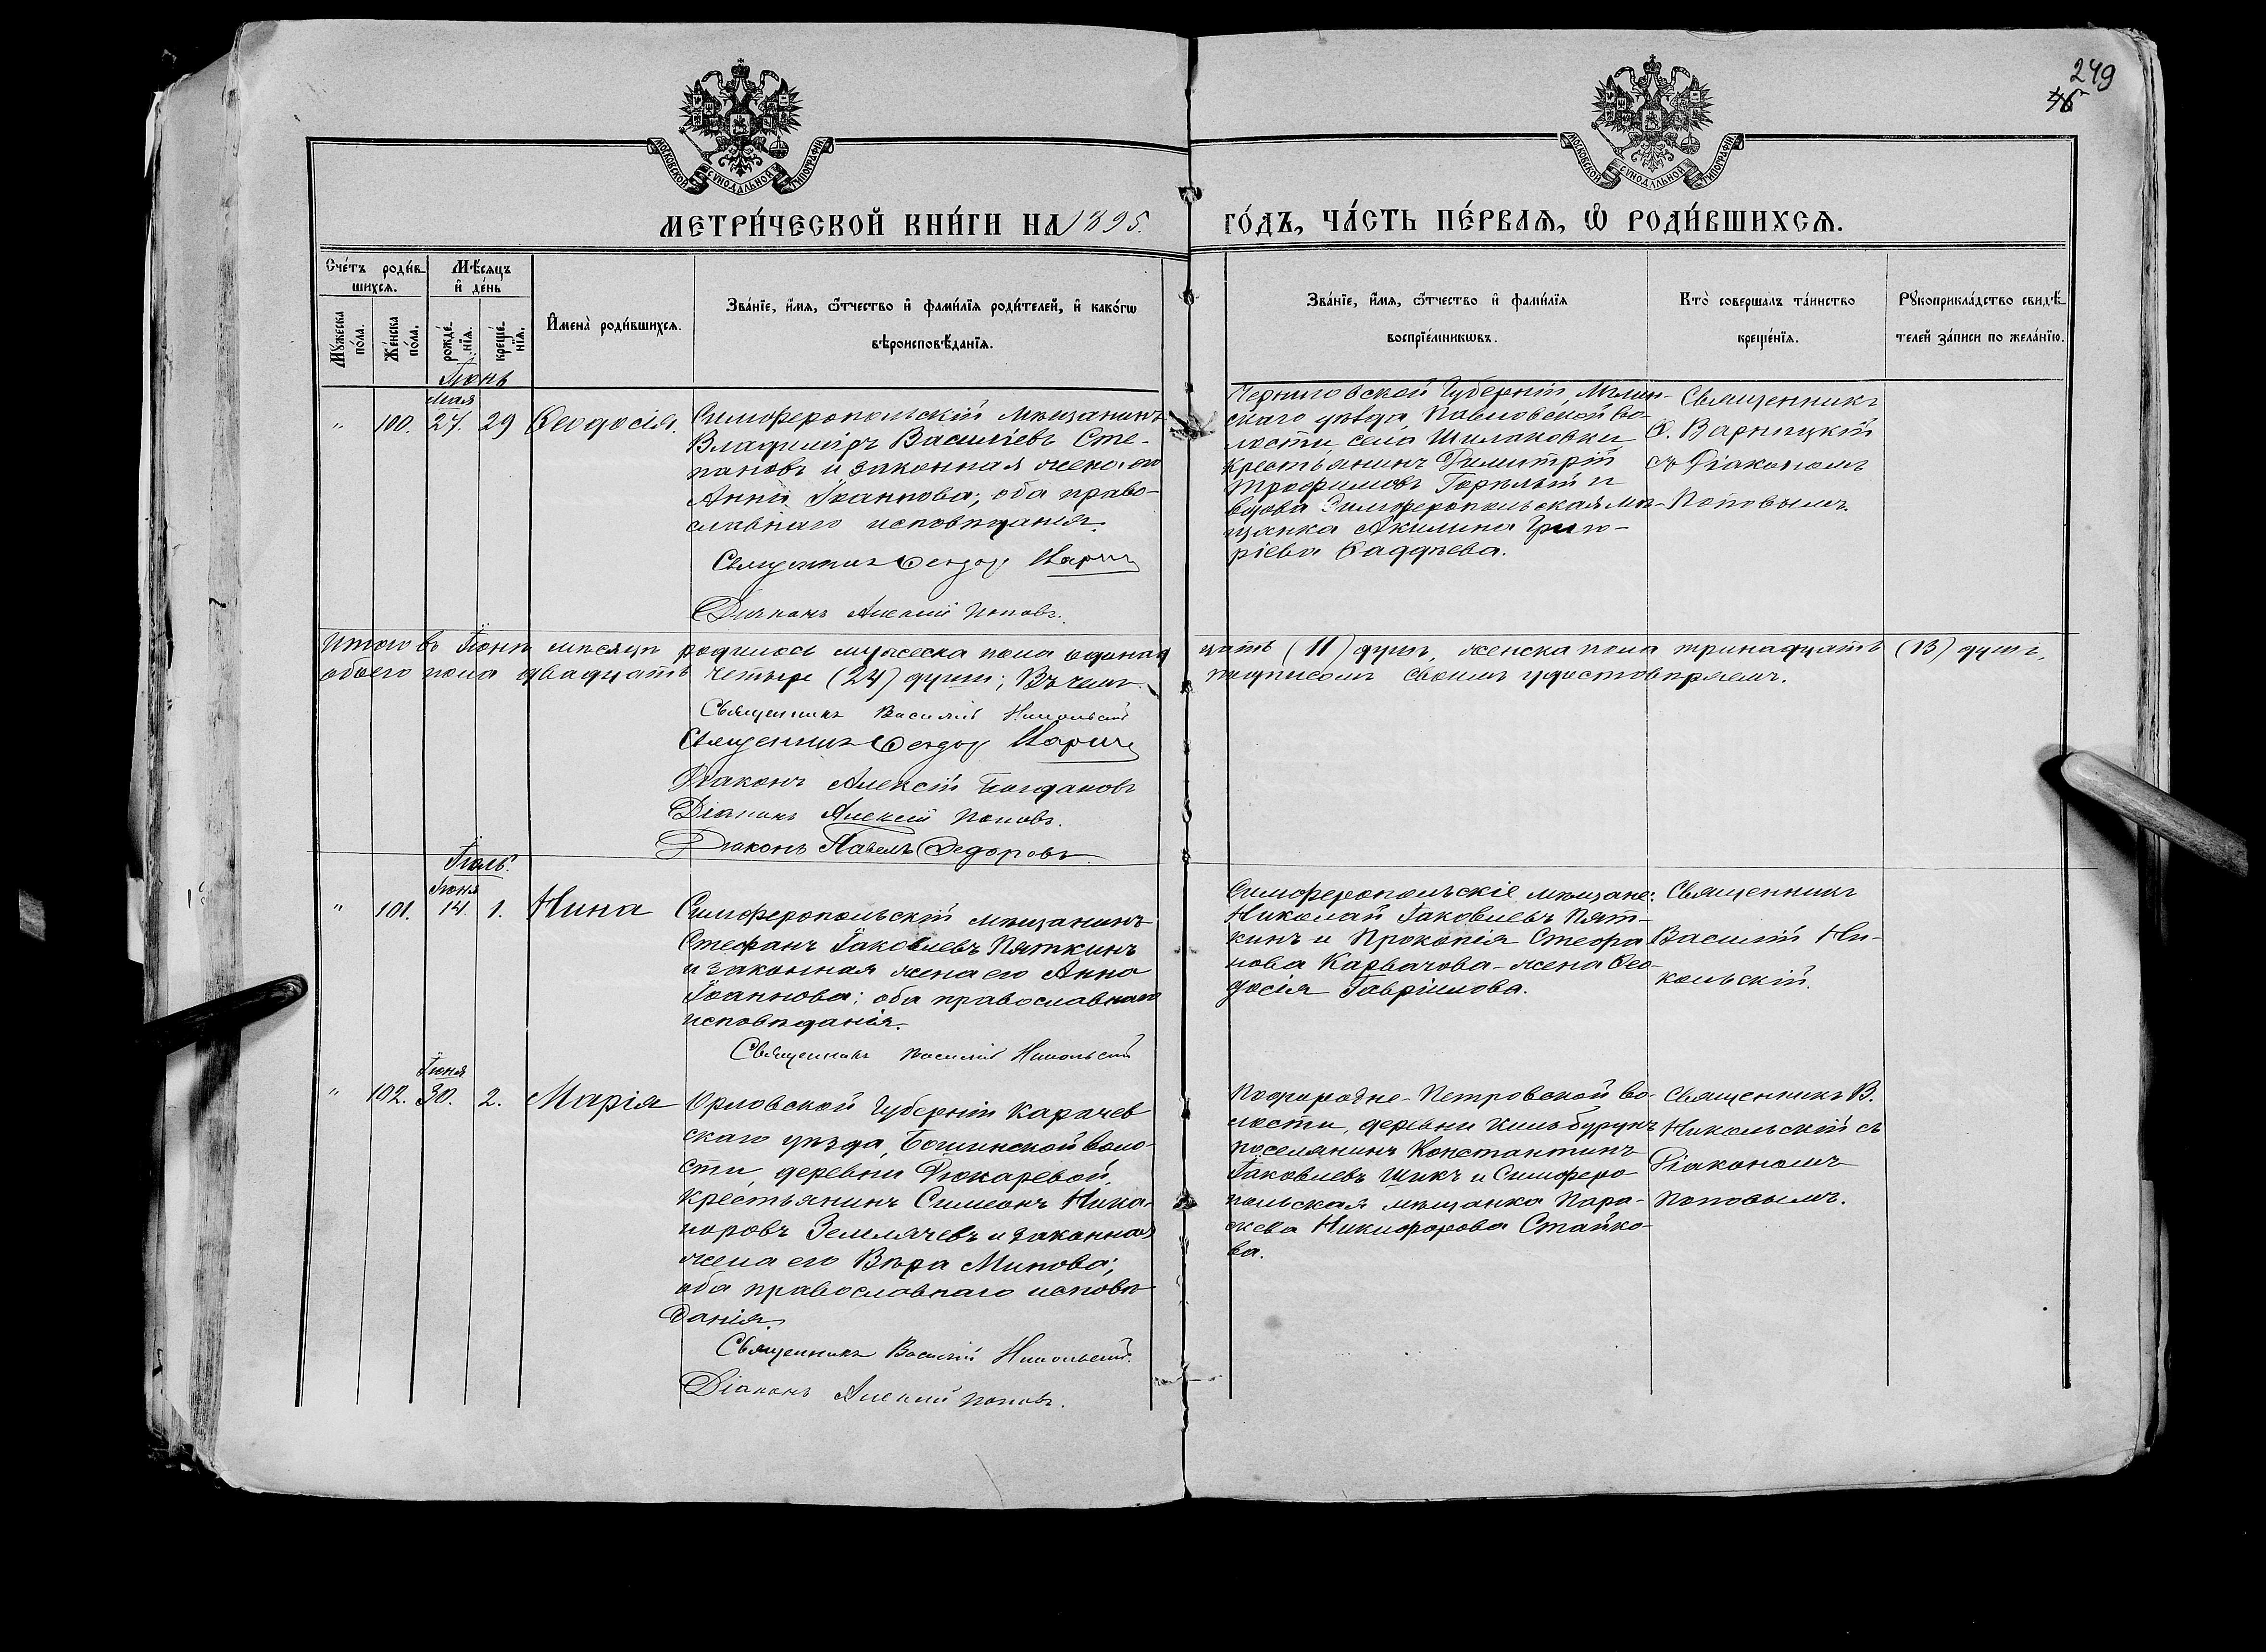 249
46
МОСКОВСКОЙ СѴНОДАЛЬНОЙ ТИПОГРАФІИ
МОСКОВСКОЙ СѴНОДАЛЬНОЙ ТИПОГРАФІИ
МЕТРИ́ЧЕСКОЙ КНИ́ГИ НА 1895. ГО́ДЪ, ЧА́СТЬ ПЕ́РВАѦ, Ѡ҆ РОДИ́ВШИХСѦ.
Сче́тъ роди́в-
шихсѧ.
Мꙋ́жеска
по́ла.
Же́нска
по́ла.
Мѣ́сѧцъ
и҆ де́нь
рожде́-
нїѧ.
креще́-
нїѧ.
И҆мена̀ роди́вшихсѧ.
Зва́нїе, и҆́мѧ, ѻ҆́тчество и҆ фами́лїѧ роди́телей, и҆ како́гѡ
вѣроисповѣ́данїѧ.
Зва́нїе, и҆́мѧ, ѻ҆́тчество и҆ фами́лїѧ
воспрїе́мникѡвъ.
Кто̀ соверша́лъ та́инство
креще́нїѧ.
Рꙋкоприкла́дство свидѣ́-
телей за́писи по жела́нїю.
Іюнь
Мая
" 100. 27. 29 Ѳеодосія.
Симферопольскій мѣщанинъ
Владиміръ Василіевъ Сте-
пановъ и законная жена его
Анна Іоаннова; оба право-
славнаго исповѣданія.
Священникъ Ѳеодор
Діаконъ Алексій Поповъ.
Черниговской Губерніи, Мглин-
скаго уѣзда, Павловской во-
лости села
крестьянинъ Димитрій
Трофимовъ Горѣлый и
вдова Симферопольская мѣ-
щанка Акилина Григо-
ріева Фаддѣева.
Священникъ
Ѳ. Варницкій
съ Діакономъ
Поповымъ.
Итого въ Іюнѣ мѣсяцѣ родилось мужеска пола одинад цать (11) душъ, женска пола тринадцать (13) душъ,
обоего пола двадцать четыре (24) души; Въ чемъ подписомъ своимъ удостовѣряемъ.
Священникъ Василій Никольскій
Священникъ Ѳеодор
Діаконъ Алексій Богдановъ
Діаконъ Алексій Поповъ.
Діаконъ Павелъ Федоровъ
Іюль.
Іюня
" 101. 14. 1. Нина
Симферопольскій мѣщанинъ
Стефанъ Іаковлевъ Пяткинъ
и законная жена его Анна
Іоаннова; оба православнаго
исповѣданія.
Священникъ Василій Никольскій
Симферопольскіе мѣщане:
Николай Іаковлевъ Пят-
кинъ и Прокопія Стефа
нова Карвачова - жена Ѳео-
досія Гавріилова.
Священникъ
Василій Ни-
кольскій.
Іюня
" 102. 30. 2. Марія
Орловской Губерніи Карачев
скаго уѣзда, Бошинской воло-
сти, деревни Дюкаревой,
крестьянинъ Симеонъ Ника-
норовъ Землячевъ и законная
жена его Вѣра Минова;
оба православнаго исповѣ-
данія.
Священникъ Василій Никольскій.
Діаконъ Алексій Поповъ.
Подгородне-Петровской во-
лости, деревни Кильбурунъ
поселянинъ Константинъ
Іаковлевъ Шикъ и Симферо-
польская мѣщанка Пара-
скева Никифорова Стайко-
ва.
Священникъ В.
Никольскій съ
Діакономъ
Поповымъ.